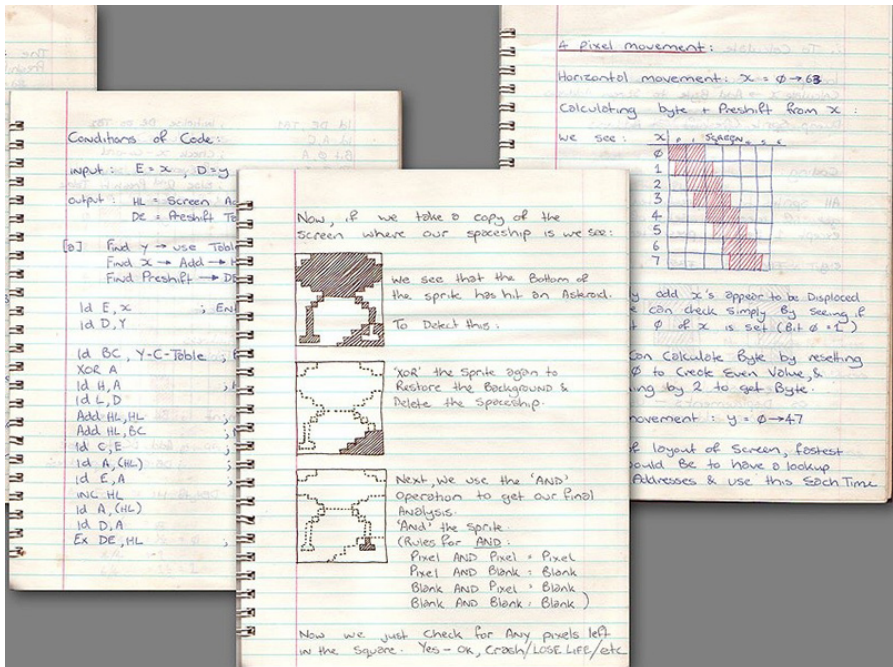 Conditions of Code:
input: E = x, D = y
output: HL = Screen
DE = Preshift
[a] Find Y → use
Find x → Add →
Find Preshift →
ld E, x ;
ld D, Y
ld BC, Y-C-Table ;
XOR A
ld H, A
ld L, D
Add HL, HL ;
Add HL, BC ;
ld C, E ;
ld A, (HL) ;
ld E, A ;
INC HL
ld A, (HL)
ld D, A
Ex DE, HL ;
Now, if we take a copy of the
screen where our spaceship is we see:
We see that the Bottom of
the sprite has hit an Asteroid.
To Detect this:
'XOR' the Sprite again to
Restore the Background &
Delete the Spaceship.
Next, We use the 'AND'
Operation to get our final
Analysis.
'And' the sprite.
(Rules for AND:
Pixel AND Pixel = Pixel
Pixel AND Blank = Blank
Blank AND Pixel = Blank
Blank AND Blank = Blank )
Now we just check for Any pixels left
in the Square. Yes - OK, Crash/LOSE LIFE/etc
A pixel movement:
Horizontal movement: x = 0 → 63
Calculating byte + Preshift from x:
we see: x SCREEN
0
1
2
3
4
5
6
7
odd x's appear to be Displaced
can check simply By seeing if
0 of x is set (Bit 0 = 1)
Can Calculate Byte by resetting
0 to Create Even Value, &
by 2 to get Byte.
movement: y = 0 → 47
of layout of Screen, fastest
would Be to have a lookup
Addresses & use this Each Time